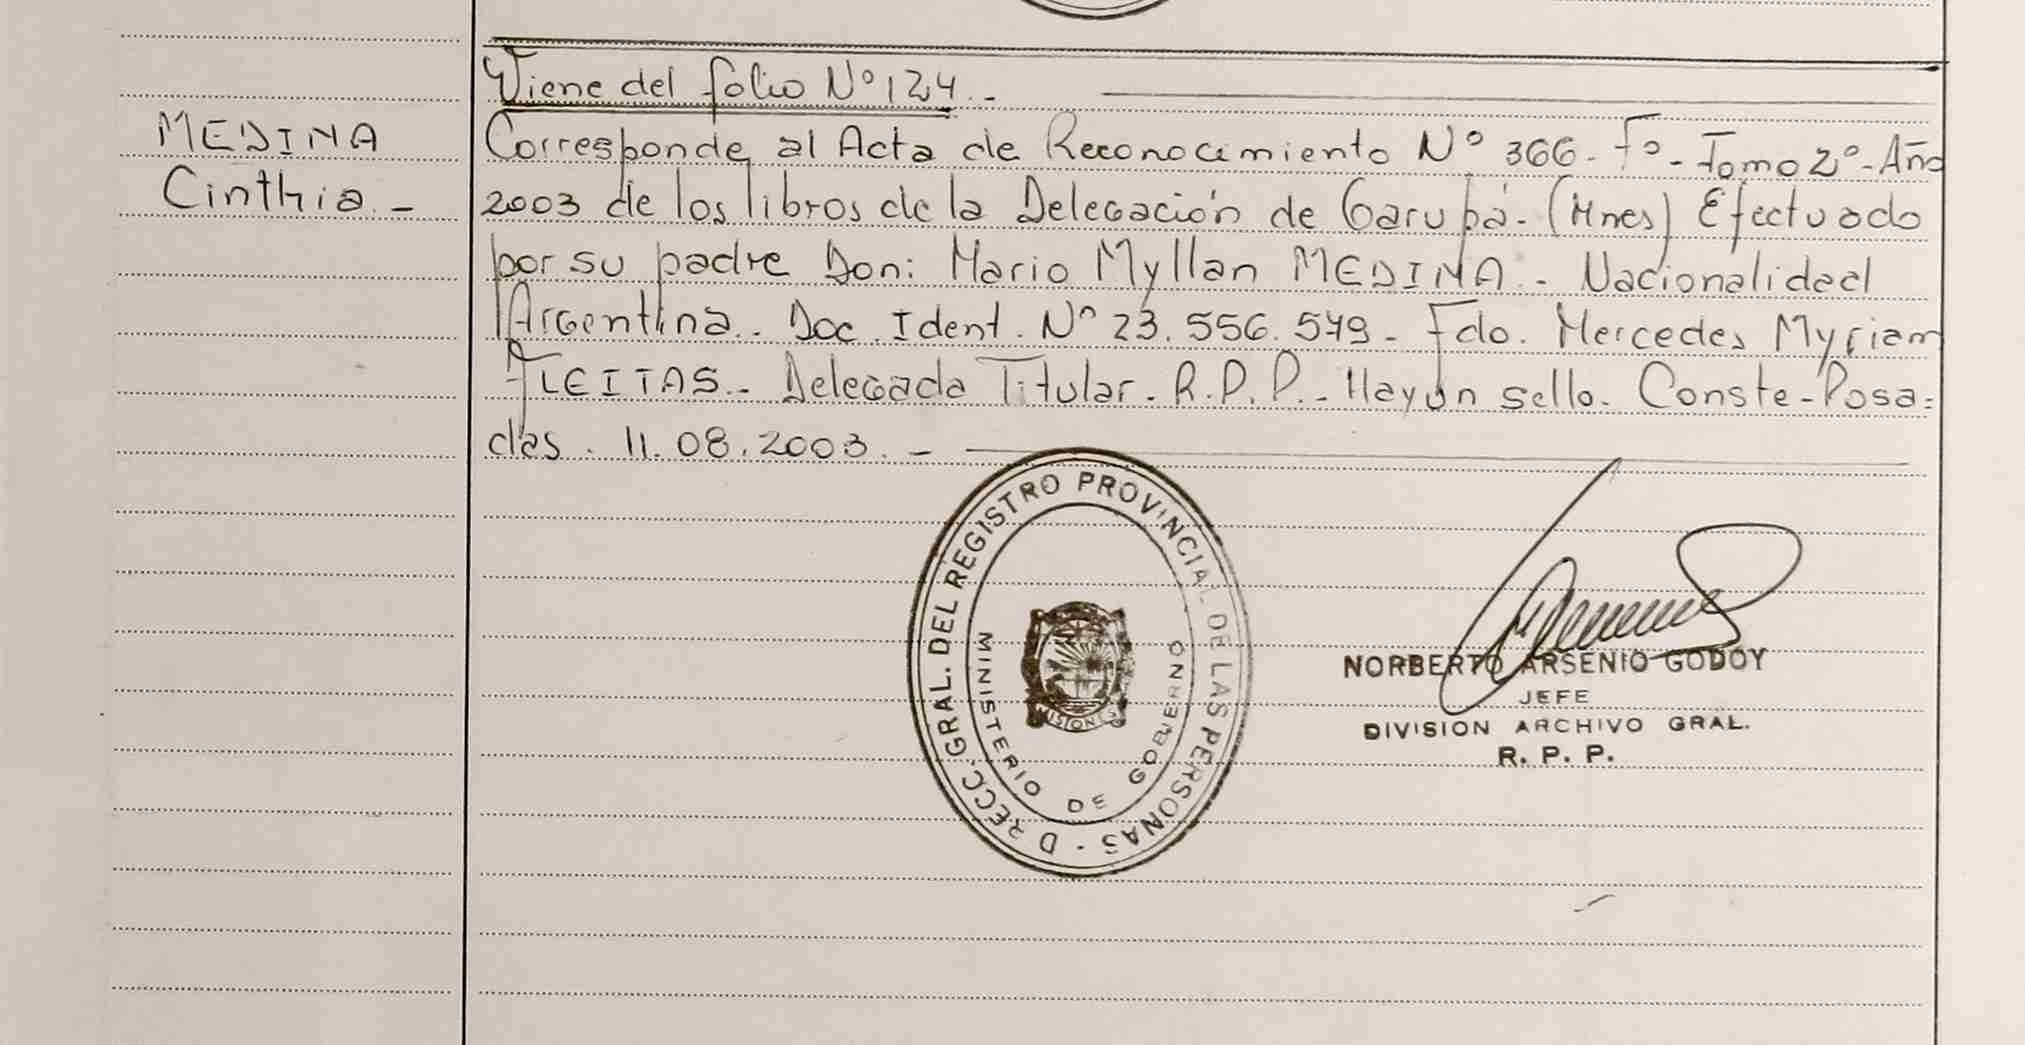 Viene del folio Nº 124. -
MEDINA
Cinthia. -
Corresponde al Acta de Reconocimiento Nº 366. Fº - Tomo 2º - Año
2003 de los libros de la Delegación de Garupá. (Mnes) Efectuado
por su padre Don: Mario Myllan MEDINA. - Nacionalidad
Argentina. - Doc. Ident. Nº 23.556.549 - Fdo. Mercedes Myriam
FLEITAS. - Delegada Titular. R.P.P. - Hay un sello. Conste - Posa=
das. 11.08.2003. -
DRECC. GRAL. DEL REGISTRO PROVINCIAL DE LAS PERSONAS -
MINISTERIO DE GOBIERNO
MISIONES
NORBERTO ARSENIO GODOY
JEFE
DIVISION ARCHIVO GRAL.
R. P. P.